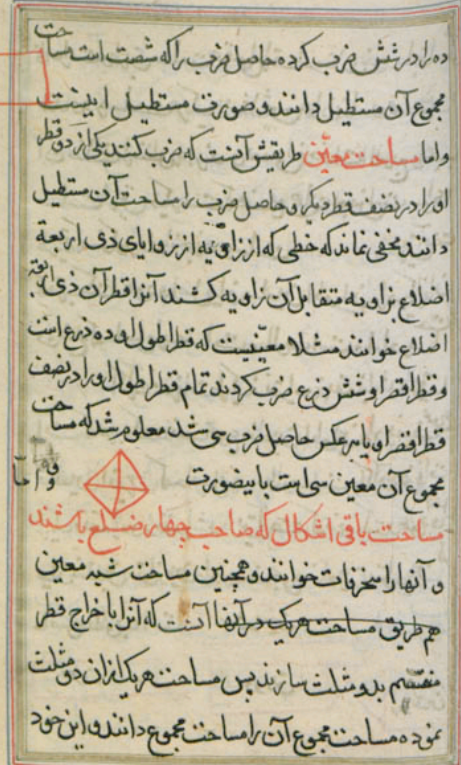 ده را در شش ضرب کرده حاصل ضرب را که شصت است مساحت
مجموع آن مستطیل دانند و صورت مستطیل اینست
و اما مساحت معین طریقش آنست که ضرب کنند یکی از دو قطر
او را در نصف قطر دیگر و حاصل ضرب را مساحت آن مستطیل
دانند و مخفی نماند که خطی که از زاویه از زوایای ذی اربعة
اضلاع بزاویه متقابل آن زاویه کشند آنرا قطر آن ذی اربعة
اضلاع خوانند مثلا معینیست که قطر اطول او ده ذرع است
و قطر اقصر او شش ذرع ضرب کردند تمام قطر اطول او را در نصف
قطر اقصر او یا برعکس حاصل ضرب سی شد معلوم شد که مساحت
مجموع آن معین سی است باینصورت
و اما
مساحت باقی اشکال که صاحب چهار ضلع باشند
و آنها را منحرفات خوانند و همچنین مساحت شبه معین
هم طریق مساحت هریک در آنها آنست که آنرا باخراج قطر
منقسم بدو مثلث سازند پس مساحت هریک از ان دو مثلث
نموده مساحت مجموع آن را مساحت مجموع دانند و این خود